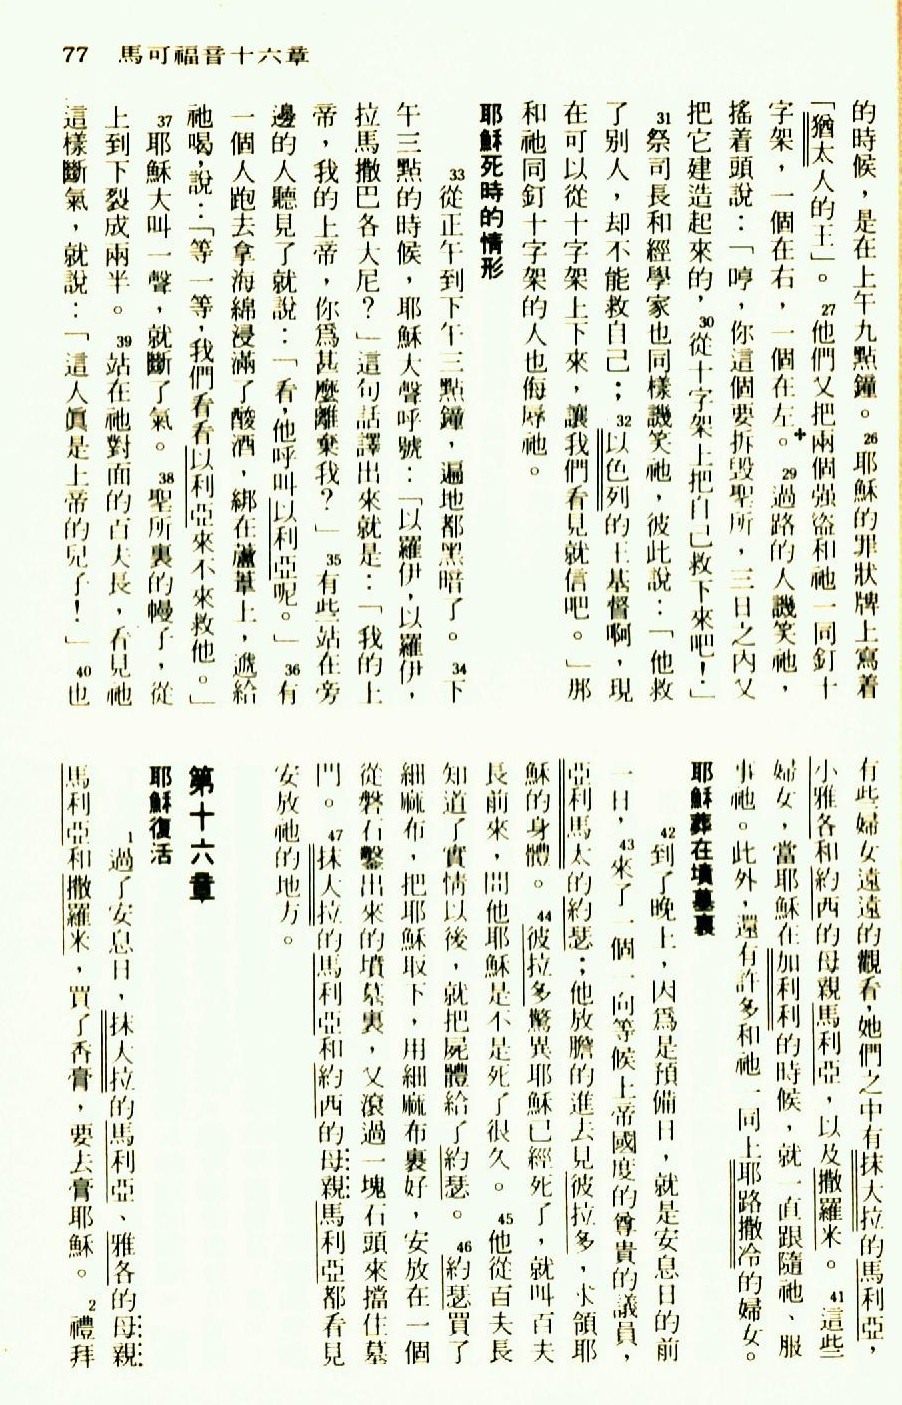 77 馬可福音十六章
的時候，是在上午九點鐘。26耶穌的罪狀牌上寫着
「猶太人的王」。27他們又把兩個强盜和祂一同釘十
字架，一個在右，一個在左。+29過路的人譏笑祂，
搖着頭說：「哼，你這個要拆毀聖所，三日之內又
把它建造起來的，30從十字架上把自己救下來吧！」
31祭司長和經學家也同樣譏笑祂，彼此說：「他救
了別人，却不能救自己；32以色列的王基督啊，現
在可以從十字架上下來，讓我們看見就信吧。」那
和祂同釘十字架的人也侮辱祂。
耶穌死時的情形
33從正午到下午三點鐘，遍地都黑暗了。34下
午三點的時候，耶穌大聲呼號：「以羅伊，以羅伊，
拉馬撒巴各大尼？」這句話譯出來就是：「我的上
帝，我的上帝，你爲甚麼離棄我？」35有些站在旁
邊的人聽見了就說：「看，他呼叫以利亞呢。」36有
一個人跑去拿海綿浸滿了酸酒，綁在蘆葦上，遞給
祂喝，說：「等一等，我們看看以利亞來不來救他。」
37耶穌大叫一聲，就斷了氣。38聖所裏的幔子，從
上到下裂成兩半。39站在祂對面的百夫長，看見祂
這樣斷氣，就說：「這人眞是上帝的兒子！」40也
有些婦女遠遠的觀看，她們之中有抹大拉的馬利亞，
小雅各和約西的母親馬利亞，以及撒羅米。41這些
婦女，當耶穌在加利利的時候，就一直跟隨祂、服
事祂。此外，還有許多和祂一同上耶路撒冷的婦女。
耶穌葬在墳墓裏
42到了晚上，因爲是預備日，就是安息日的前
一日，43來了一個一向等候上帝國度的尊貴的議員，
亞利馬太的約瑟；他放膽的進去見彼拉多，求領耶
穌的身體。44彼拉多驚異耶穌已經死了，就叫百夫
長前來，問他耶穌是不是死了很久。45他從百夫長
知道了實情以後，就把屍體給了約瑟。46約瑟買了
細麻布，把耶穌取下，用細麻布裹好，安放在一個
從磐石鑿出來的墳墓裏，又滾過一塊石頭來擋住墓
門。47抹大拉的馬利亞和約西的母親馬利亞都看見
安放祂的地方。
第十六章
耶穌復活
1過了安息日，抹大拉的馬利亞、雅各的母親
馬利亞和撒羅米，買了香膏，要去膏耶穌。2禮拜